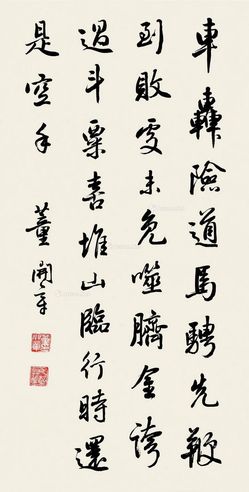 車轟險道馬騁先鞭
到敗處未免噬臍金誇
過斗粟喜堆山臨行時還
是空手
董開章